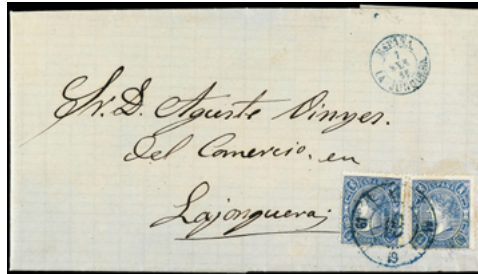 ESPAÑA
1
LA JUNQUERA
Sr. D. Aguste Vinyes.
Del Comercio. en
Lajonquera;
19
19
19